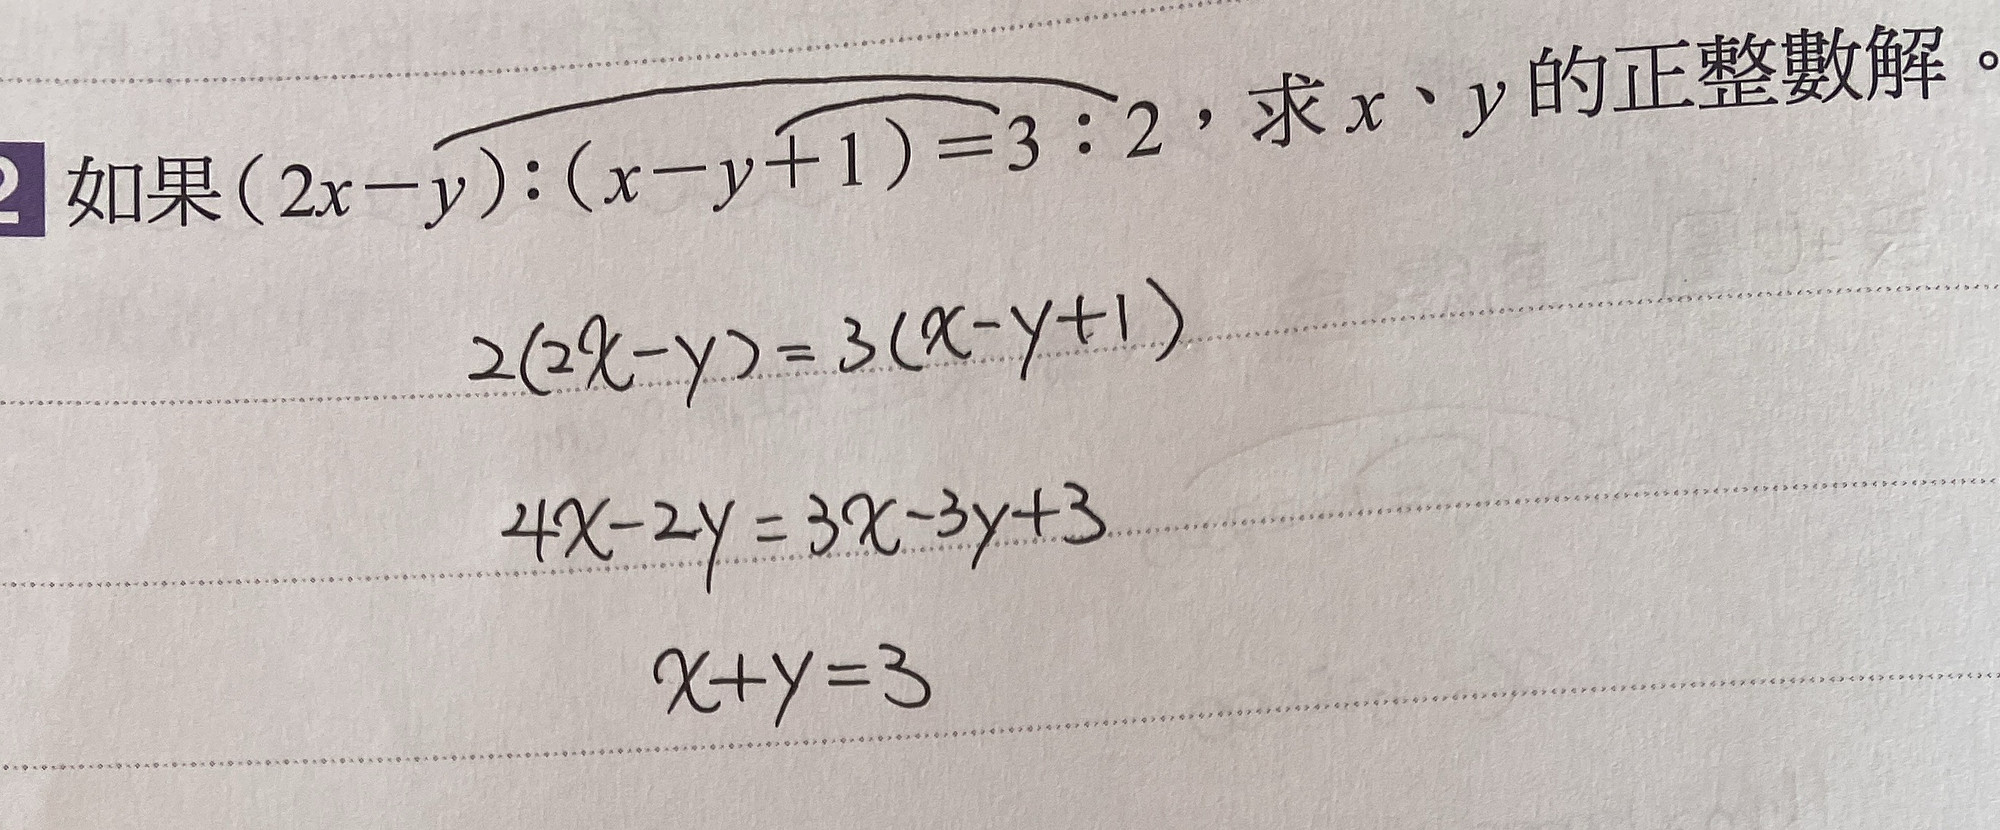 2 如果(2x-y):(x-y+1)=3:2,求x、y的正整數解。
2(2x-y)=3(x-y+1)
4x-2y=3x-3y+3
x+y=3